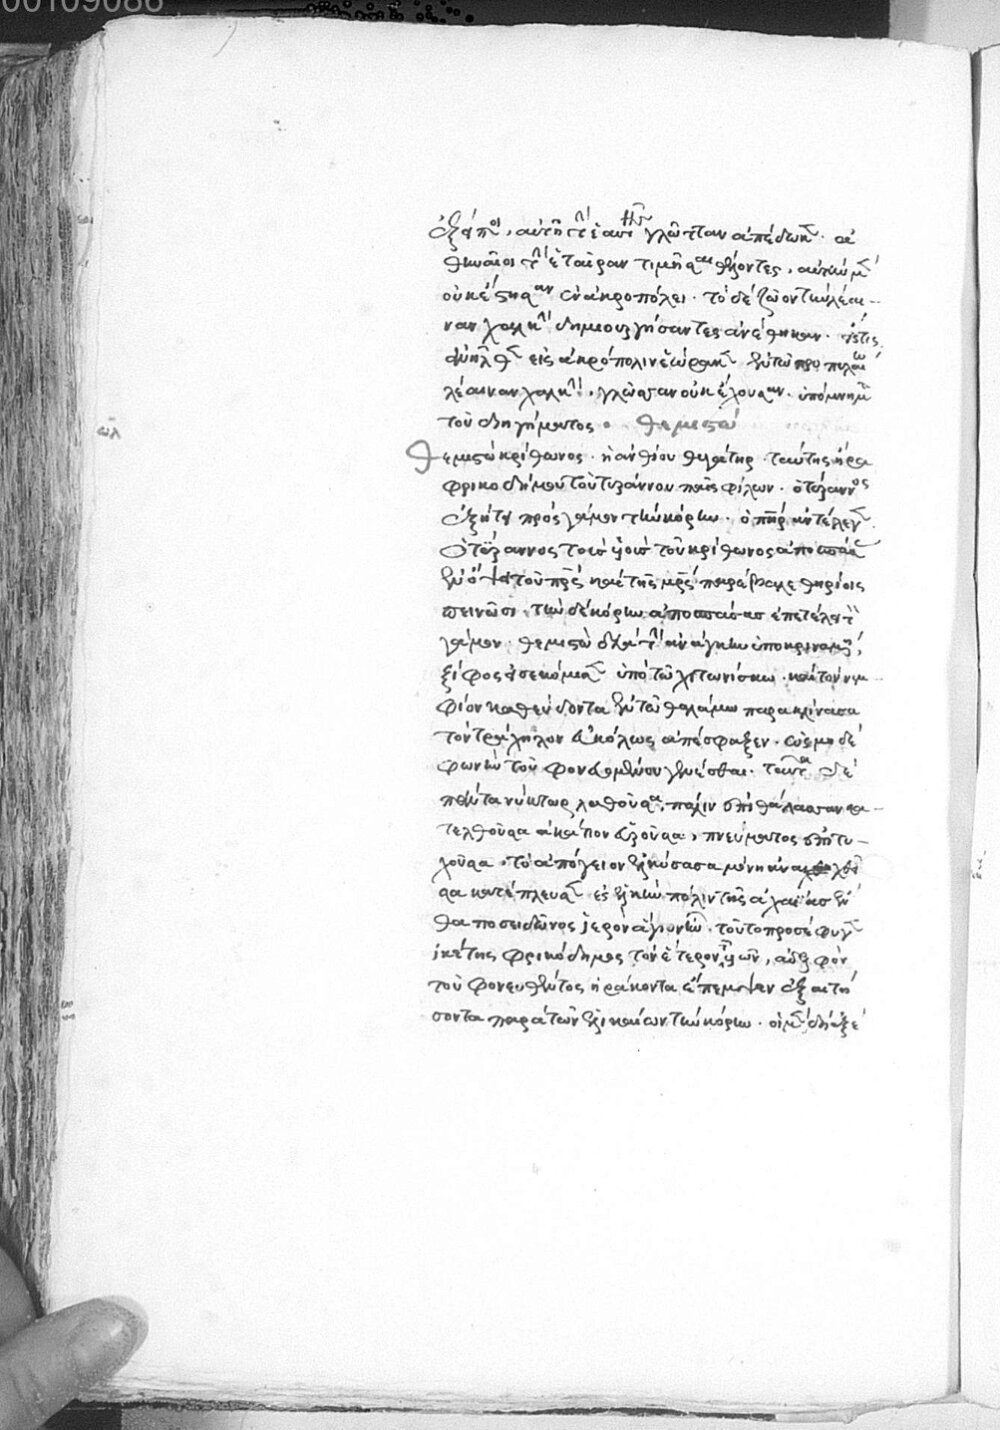 00109088
ἐξείποι, αὐτὴ τὴν ἑαυτῆς γλῶτταν ἀπέδακεν. ἀ
θηναῖοι τὴν ἑταῖραν τιμῆσαι θέλοντες, αὐτὴν μὲν
οὐκ ἔστησαν ἐν ἀκροπόλει. τὸ δὲ ζῶον τὴν λέαι
ναν χαλκῆν δημιουργήσαντες ἀνέθηκαν. ὅστις
ἀνῆλθεν εἰς ἀκρόπολιν ἑώρακεν ἐν τῷ προπυλαίῳ
λέαιναν χαλκῆν, γλῶσσαν οὐκ ἔχουσαν. ὑπόμνημα
τοῦ διηγήματος. θεμιστώ
Θεμιστὼ κρίθωνος. ἢ ἀνθίου θυγάτηρ. ταύτης ἤρα
φρικοδήμου τοῦ τυράννου παῖς φίλων. ὁ τύραννος
ἐζήτει πρὸς γάμον τὴν κόρην. ὁ πηρ ἀντέλεγεν.
Ὁ τύραννος τοὺς υἱοὺς τοῦ κρίθωνος ἀποσπάσας
ἐν ὄψει τοῦ πρς καὶ τῆς μρς παρέβαλε θηρίοις
πεινῶσι. τὴν δὲ κόρην ἀποσπάσας ἐπετέλει τὸν
γάμον. θεμιστὼ διὰ τὴν ἀνάγκην ὑποκριναμένη,
ξίφος εἰσεκόμισεν ὑπὸ τῷ χιτωνίσκῳ. καὶ τὸν νυμ
φίον καθεύδοντα ἐν τῷ θαλάμῳ παρακλίνασα
τὸν τράχηλον εὐκόλως ἀπέσφαξεν. ὡς μηδὲ
φωνὴν τοῦ φονευομένου γενέσθαι. ταῦτα δὲ
πάντα νύκτωρ λαθοῦσα, πάλιν ἐπὶ θάλασσαν κα
τελθοῦσα ἀκάτιον εὑροῦσα, πνεύματος ἐπιτυ
χοῦσα, τὸ ἀπόγειον ἑλκύσασα μόνη ἀναχθεῖ
σα κατέπλευσεν ἐς ἑλίκην πόλιν τῆς ἀχαΐας ἔν
θα ποσειδῶνος ἱερὸν ἅγιον ἦν. τοῦτο προσέφυγεν
ἱκέτης φρικόδημος τὸν ἕτερον τῶν υἱῶν, ἀδελφὸν
τοῦ φονευθέντος ἡράκοντα ἔπεμψεν ἐξαιτή
σοντα παρὰ τῶν ἑλικαίων τὴν κόρην. οἱ μὲν ἐδέξα